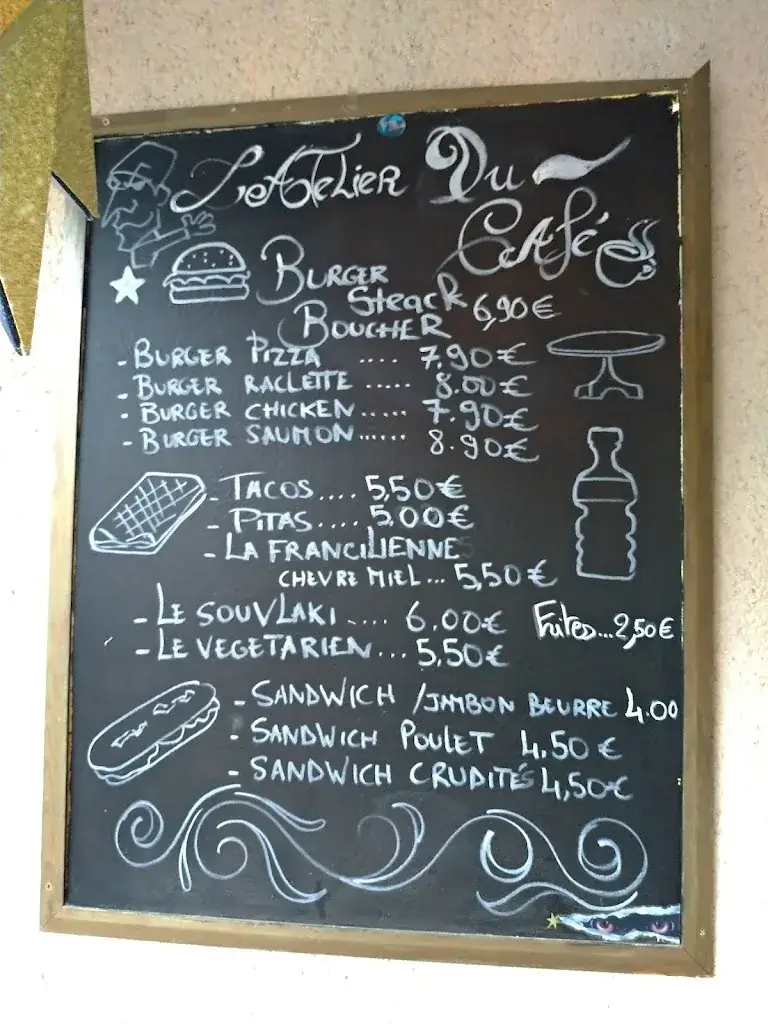 L'Atelier Du
Café
Burger
Steack 6,90€
Boucher
- Burger Pizza .... 7.90€
- Burger Raclette ..... 8.00€
- Burger Chicken ..... 7.90€
- Burger Saumon ...... 8.90€
- Tacos.... 5,50€
- Pitas.... 5.00€
- La Francilienne
Chevre Miel... 5,50€
- Le Souvlaki .... 6.00€ Frites...2,50€
- Le Vegetarien... 5,50€
- Sandwich /Jambon Beurre 4.00
- Sandwich Poulet 4.50€
- Sandwich Crudités 4,50€